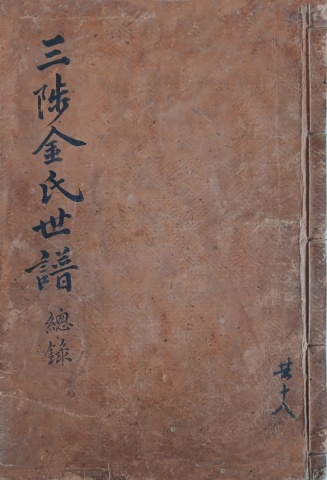 三陟金氏世譜
總錄
共十八